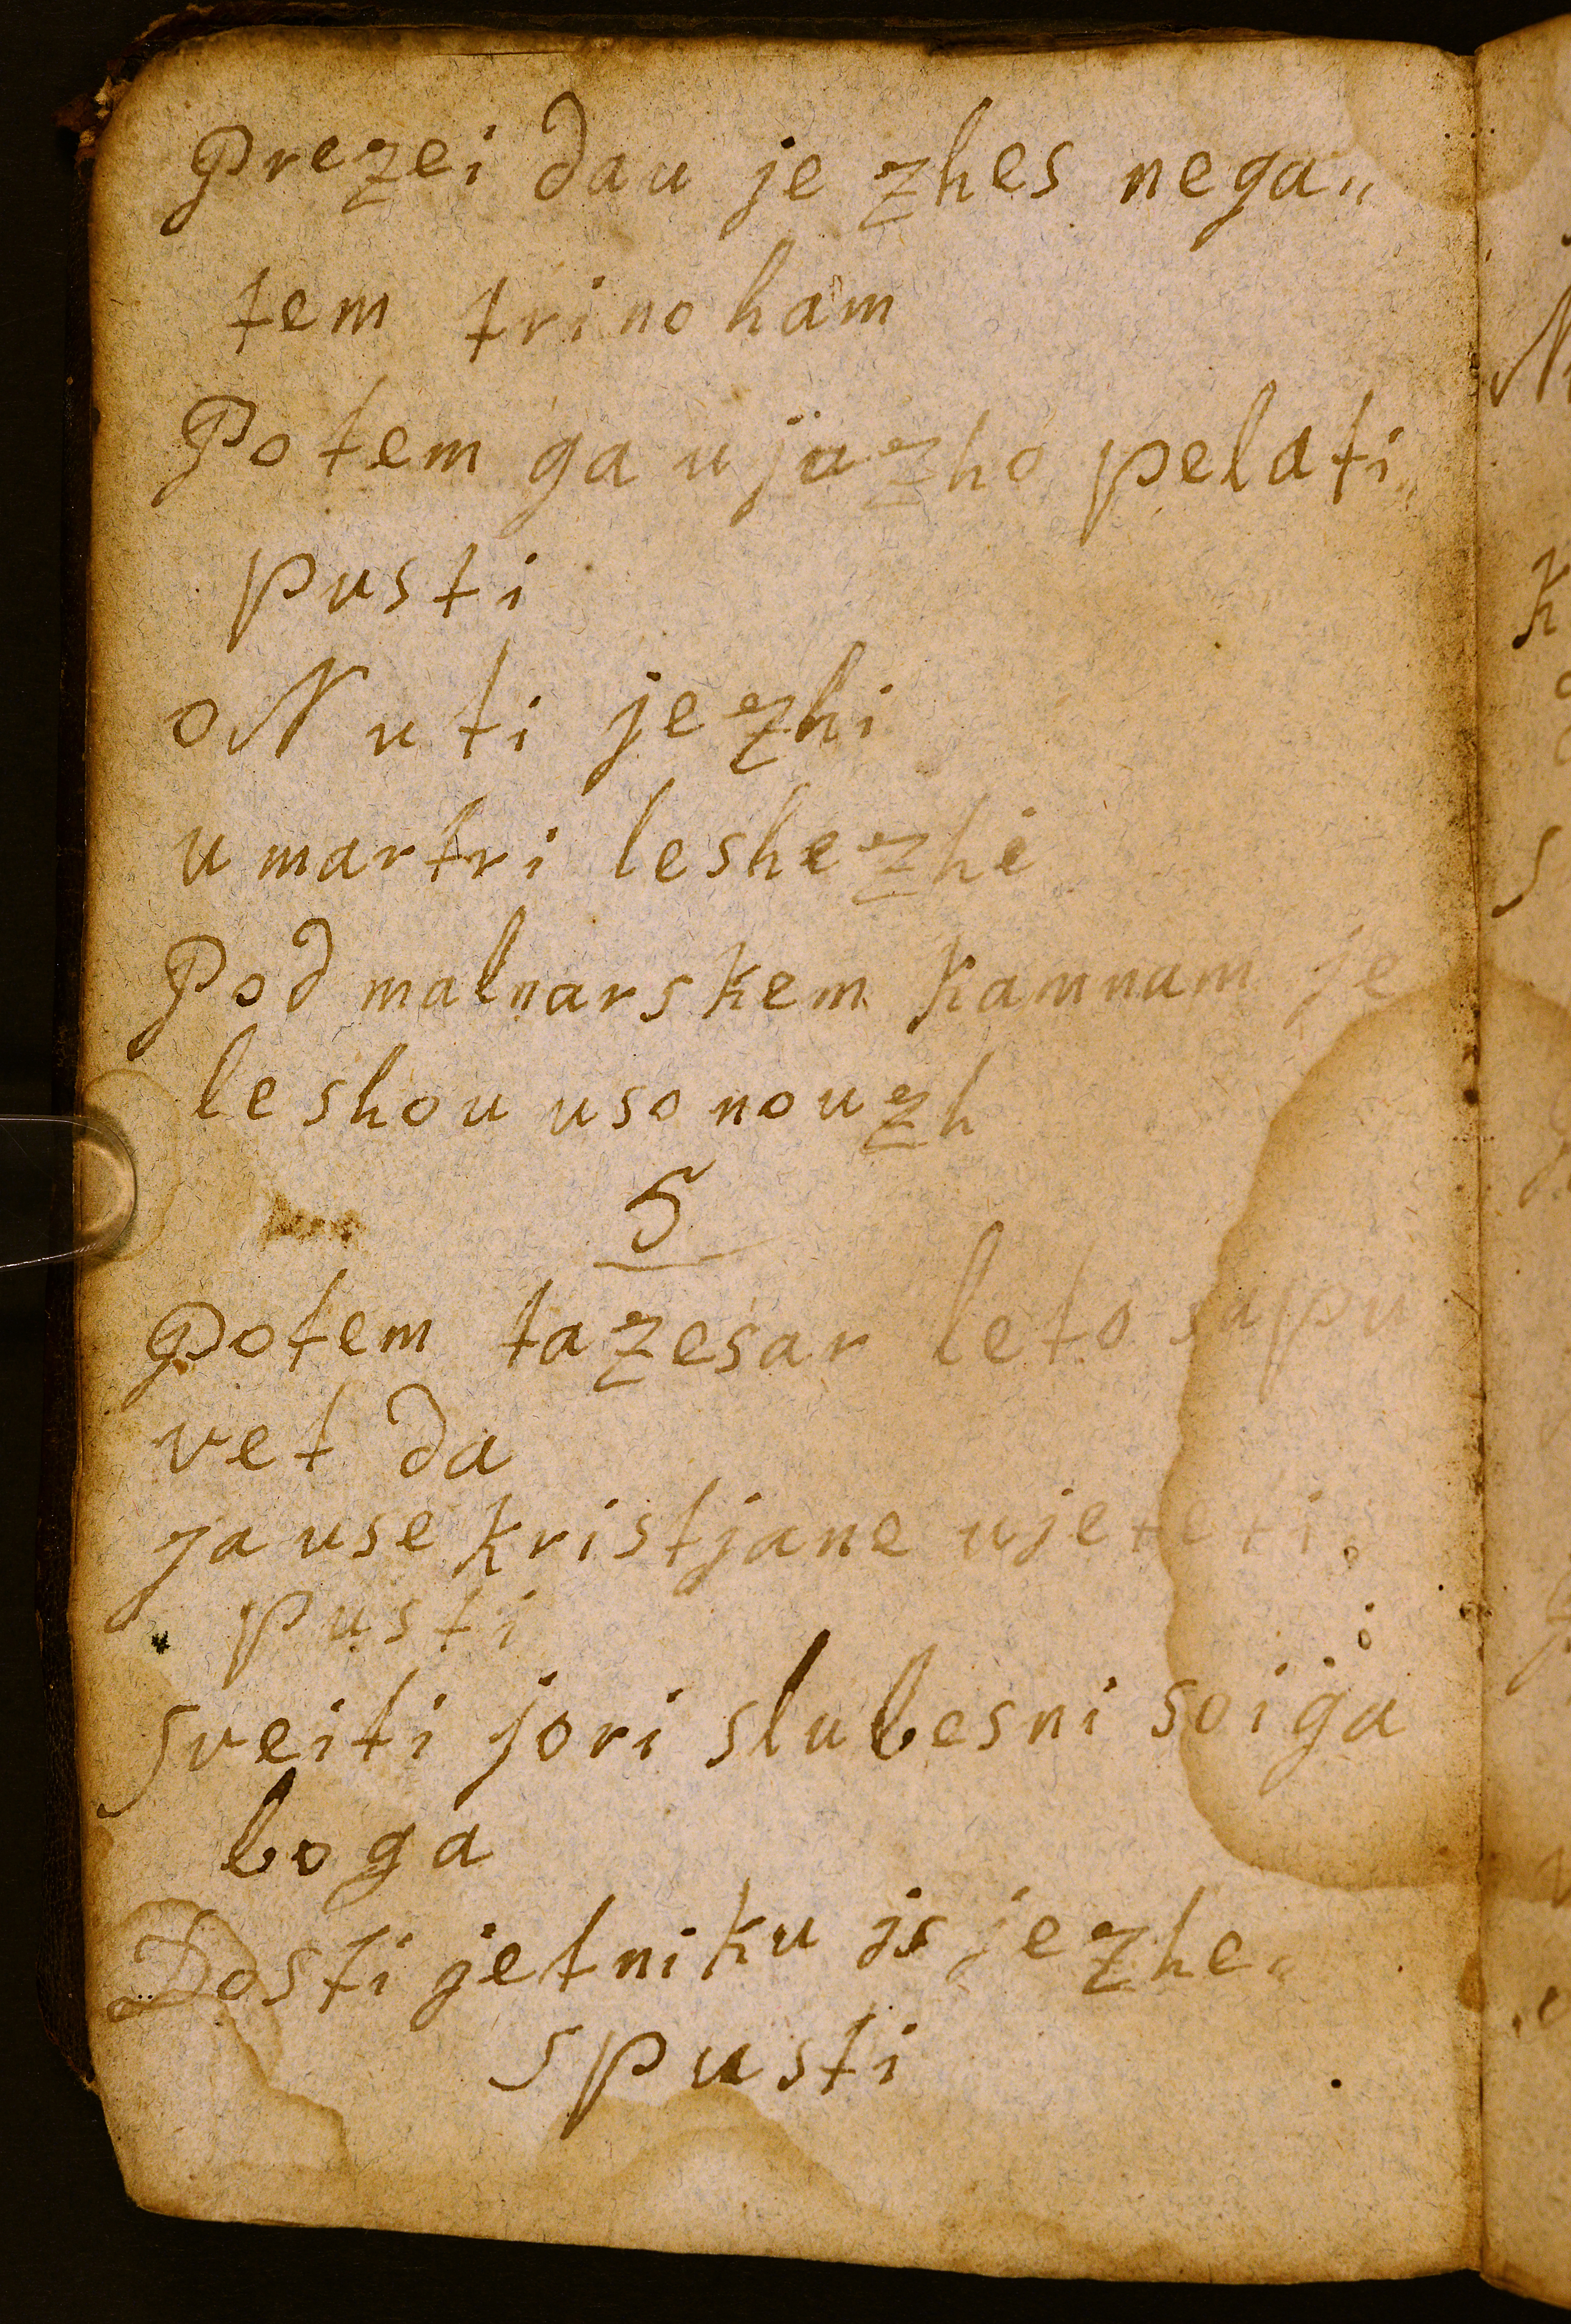 Prezei dau je zhes nega„
tem trino ham
Potem ga u jazho pelati„
pusti
oN u ti jezhi
u martri leshezhi
Pod malnarskem kamnam je
leshou uso nouzh
5
Potem ta zesar leto sapu
vet da
ga use kristjane ujeteti
pusti
sveiti jori slubesni soiga
boga
Dosti jetniku is jezhe„
spusti